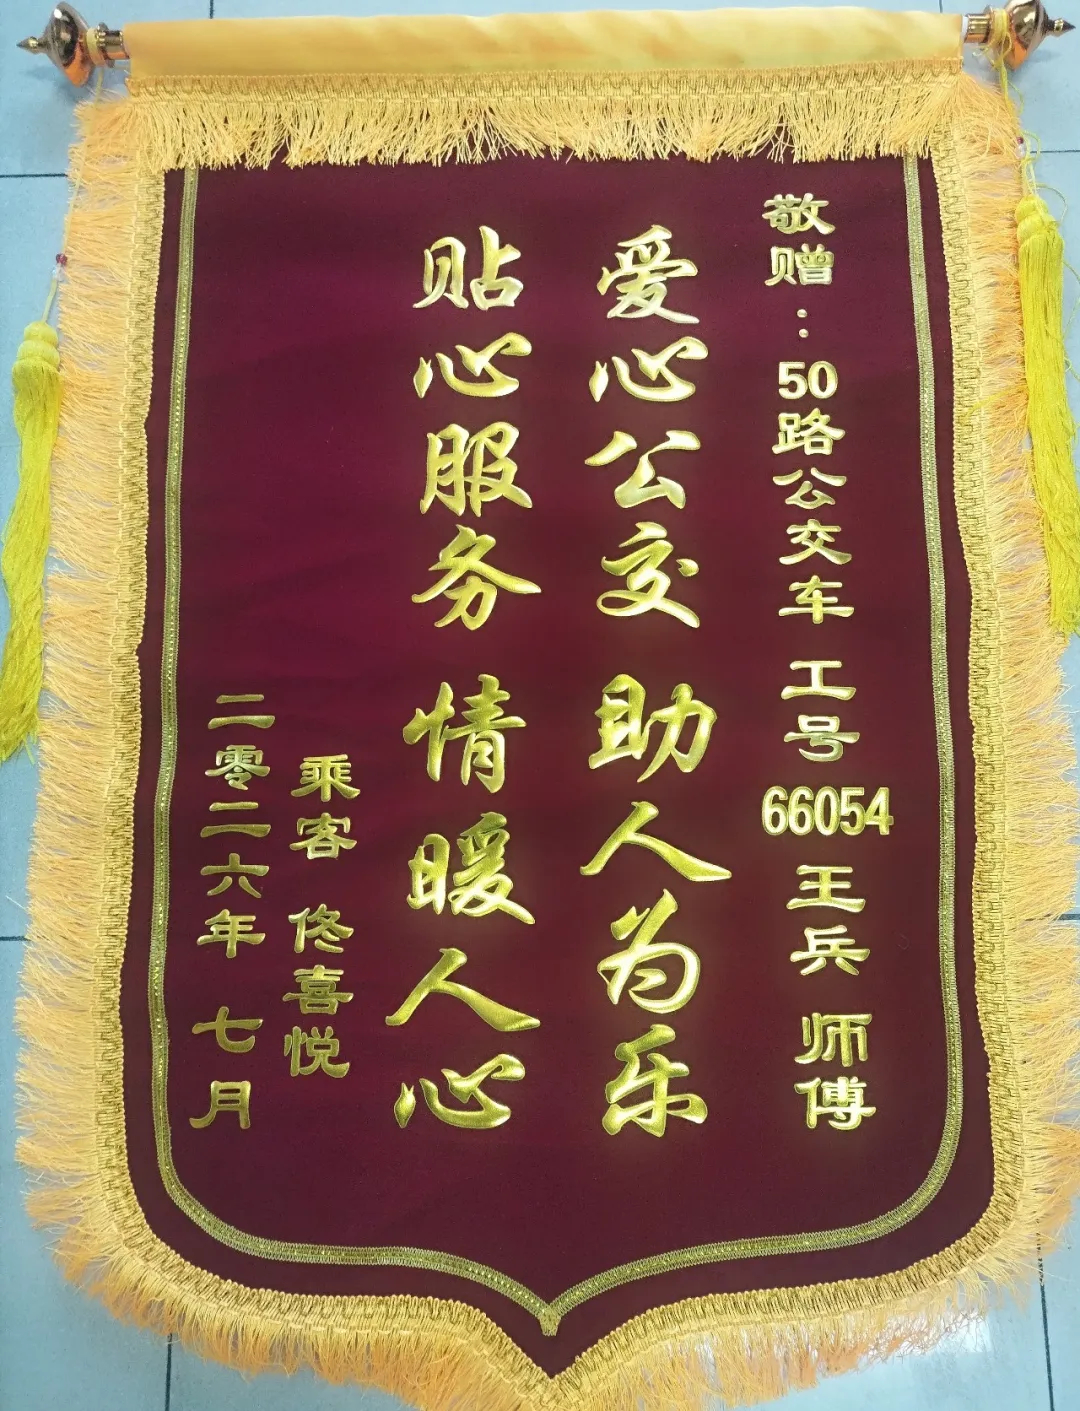 敬赠：50路公交车 工号 66054 王兵 师傅
爱心公交 助人为乐
贴心服务 情暖人心
乘客 佟喜悦
二零二六年 七月